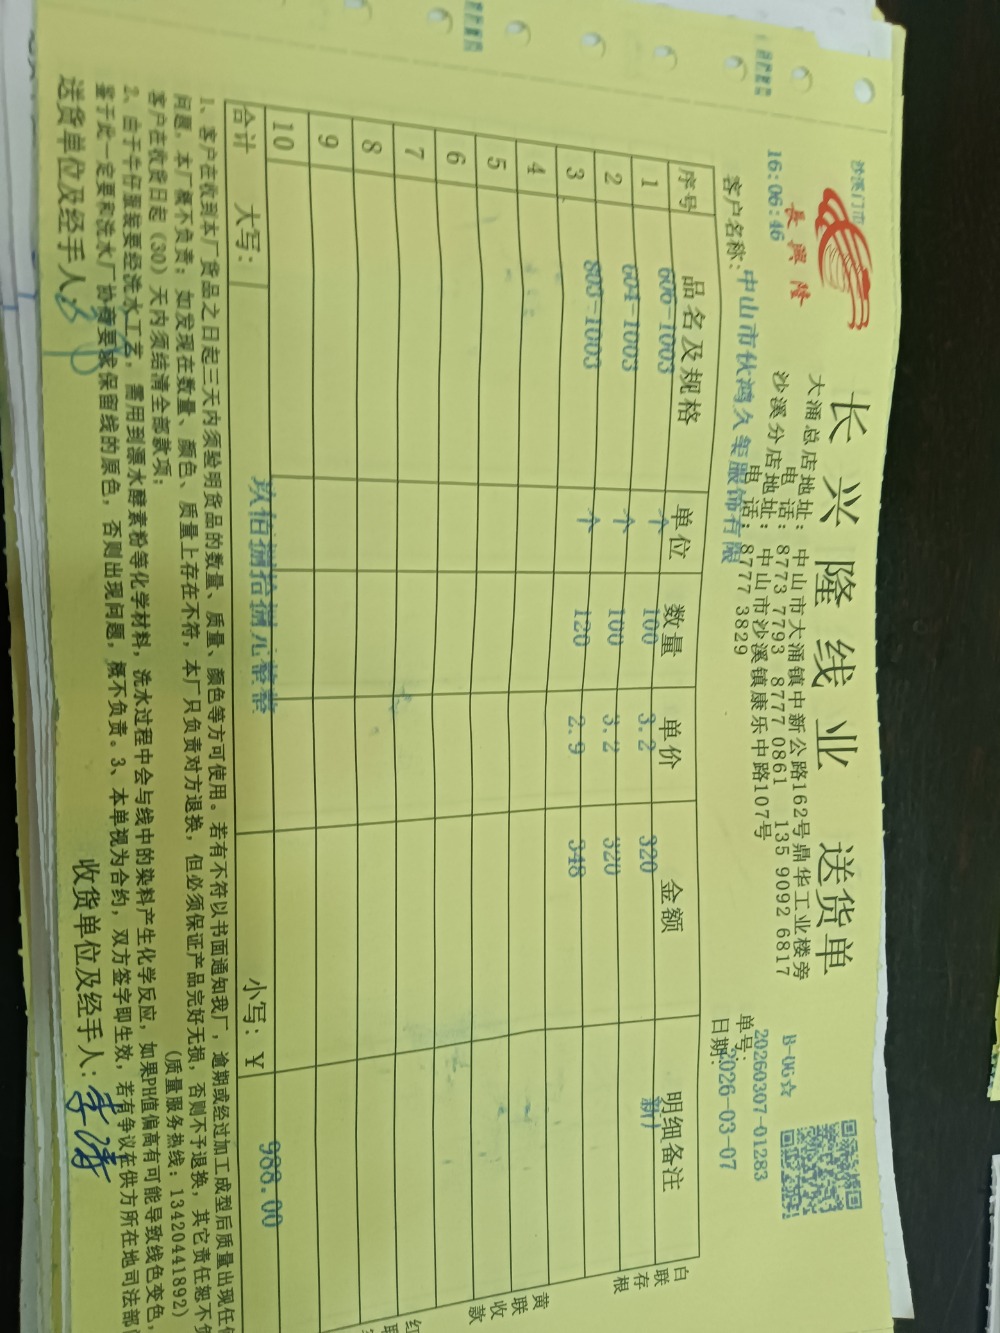 沙溪门市
長興隆
16:06:46
长兴隆线业 送货单
大涌总店地址: 中山市大涌镇中新公路162号鼎华工业楼旁
电 话: 8773 7793 8777 0861 135 9092 6817
沙溪分店地址: 中山市沙溪镇康乐中路107号
电 话: 8777 3829
B-06☆
单号: 20260307-01283
日期: 2026-03-07
客户名称: 中山市伙鸿久集服饰有限
序号 品名及规格 单位 数量 单价 金额 明细备注
1 606-1003 个 100 3.2 320 新厂
2 604-1003 个 100 3.2 320
3 803-1003 个 120 2.9 348
4
5
6
7
8
9
10
合计 大写: 玖佰捌拾捌元整整 小写: ¥ 988.00
白联存根
黄联收款
红联
1、客户在收到本厂货品之日起三天内须验明货品的数量、质量、颜色等方可使用。若有不符以书面通知我厂,逾期或经过加工成型后质量出现任何
问题,本厂概不负责;如发现在数量、颜色、质量上存在不符,本厂只负责对方退换,但必须保证产品完好无损,否则不予退换,其它责任恕不负
客户在收货日起(30)天内须结清全部款项; (质量服务热线: 13420441892)
2、由于牛仔服装要经洗水工艺,需用到漂水酵素粉等化学材料,洗水过程中会与线中的染料产生化学反应,如果PH值偏高有可能导致线色变色,
鉴于此一定要和洗水厂协商要求保留线的原色,否则出现问题,概不负责。3、本单视为合约,双方签字即生效,若有争议在供方所在地司法部门
送货单位及经手人: 收货单位及经手人: 李涛